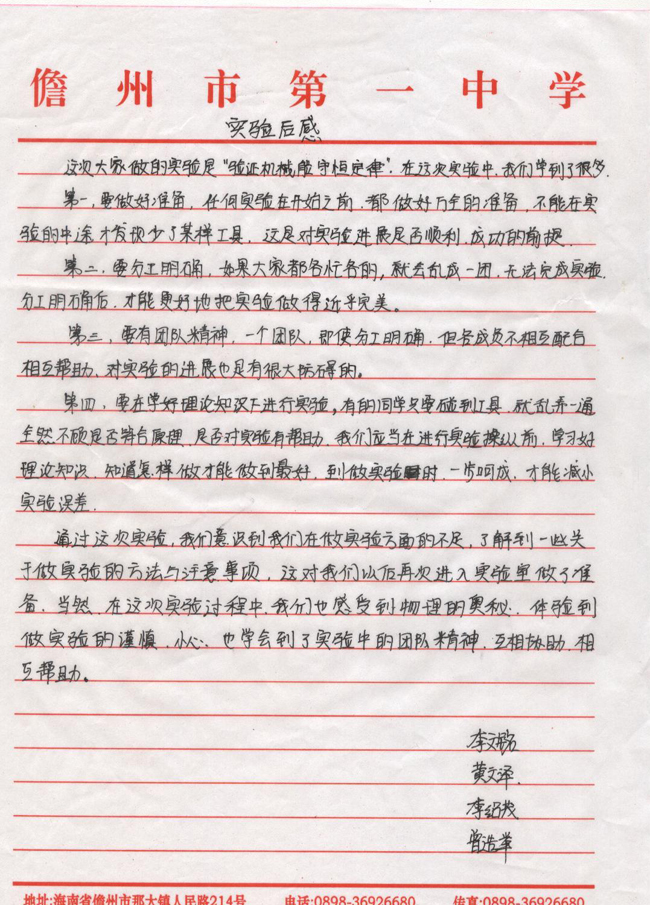 儋州市第一中学
实验后感
这次大家做的实验是“验证机械能守恒定律”.在这次实验中,我们学到了很多.
第一,要做好准备,任何实验在开始之前,都做好万全的准备,不能在实
验的中途才发现少了某样工具,这是对实验进展是否顺利,成功的前提.
第二,要分工明确,如果大家都各忙各的,就会乱成一团,无法完成实验.
分工明确后,才能更好地把实验做得近乎完美。
第三,要有团队精神,一个团队,即使分工明确,但各成员不相互配合
相互帮助,对实验的进展也是有很大妨碍的。
第四,要在学好理论知识下进行实验,有的同学只要碰到工具,就乱弄一通
全然不顾是否符合原理,是否对实验有帮助,我们应当在进行实验操纵前,学习好
理论知识,知道怎样做才能做到最好,到做实验时,一步呵成,才能减小
实验误差.
通过这次实验,我们意识到我们在做实验方面的不足,了解到一些关
于做实验的方法与注意事项,这对我们以后再次进入实验室做了准
备,当然,在这次实验过程中,我们也感受到物理的奥秘,体验到
做实验的谨慎,小心,也学会到了实验中的团队精神,互相协助,相
互帮助。
黄文泽.
地址:海南省儋州市那大镇人民路214号 电话:0898-36926680 传真:0898-36926680